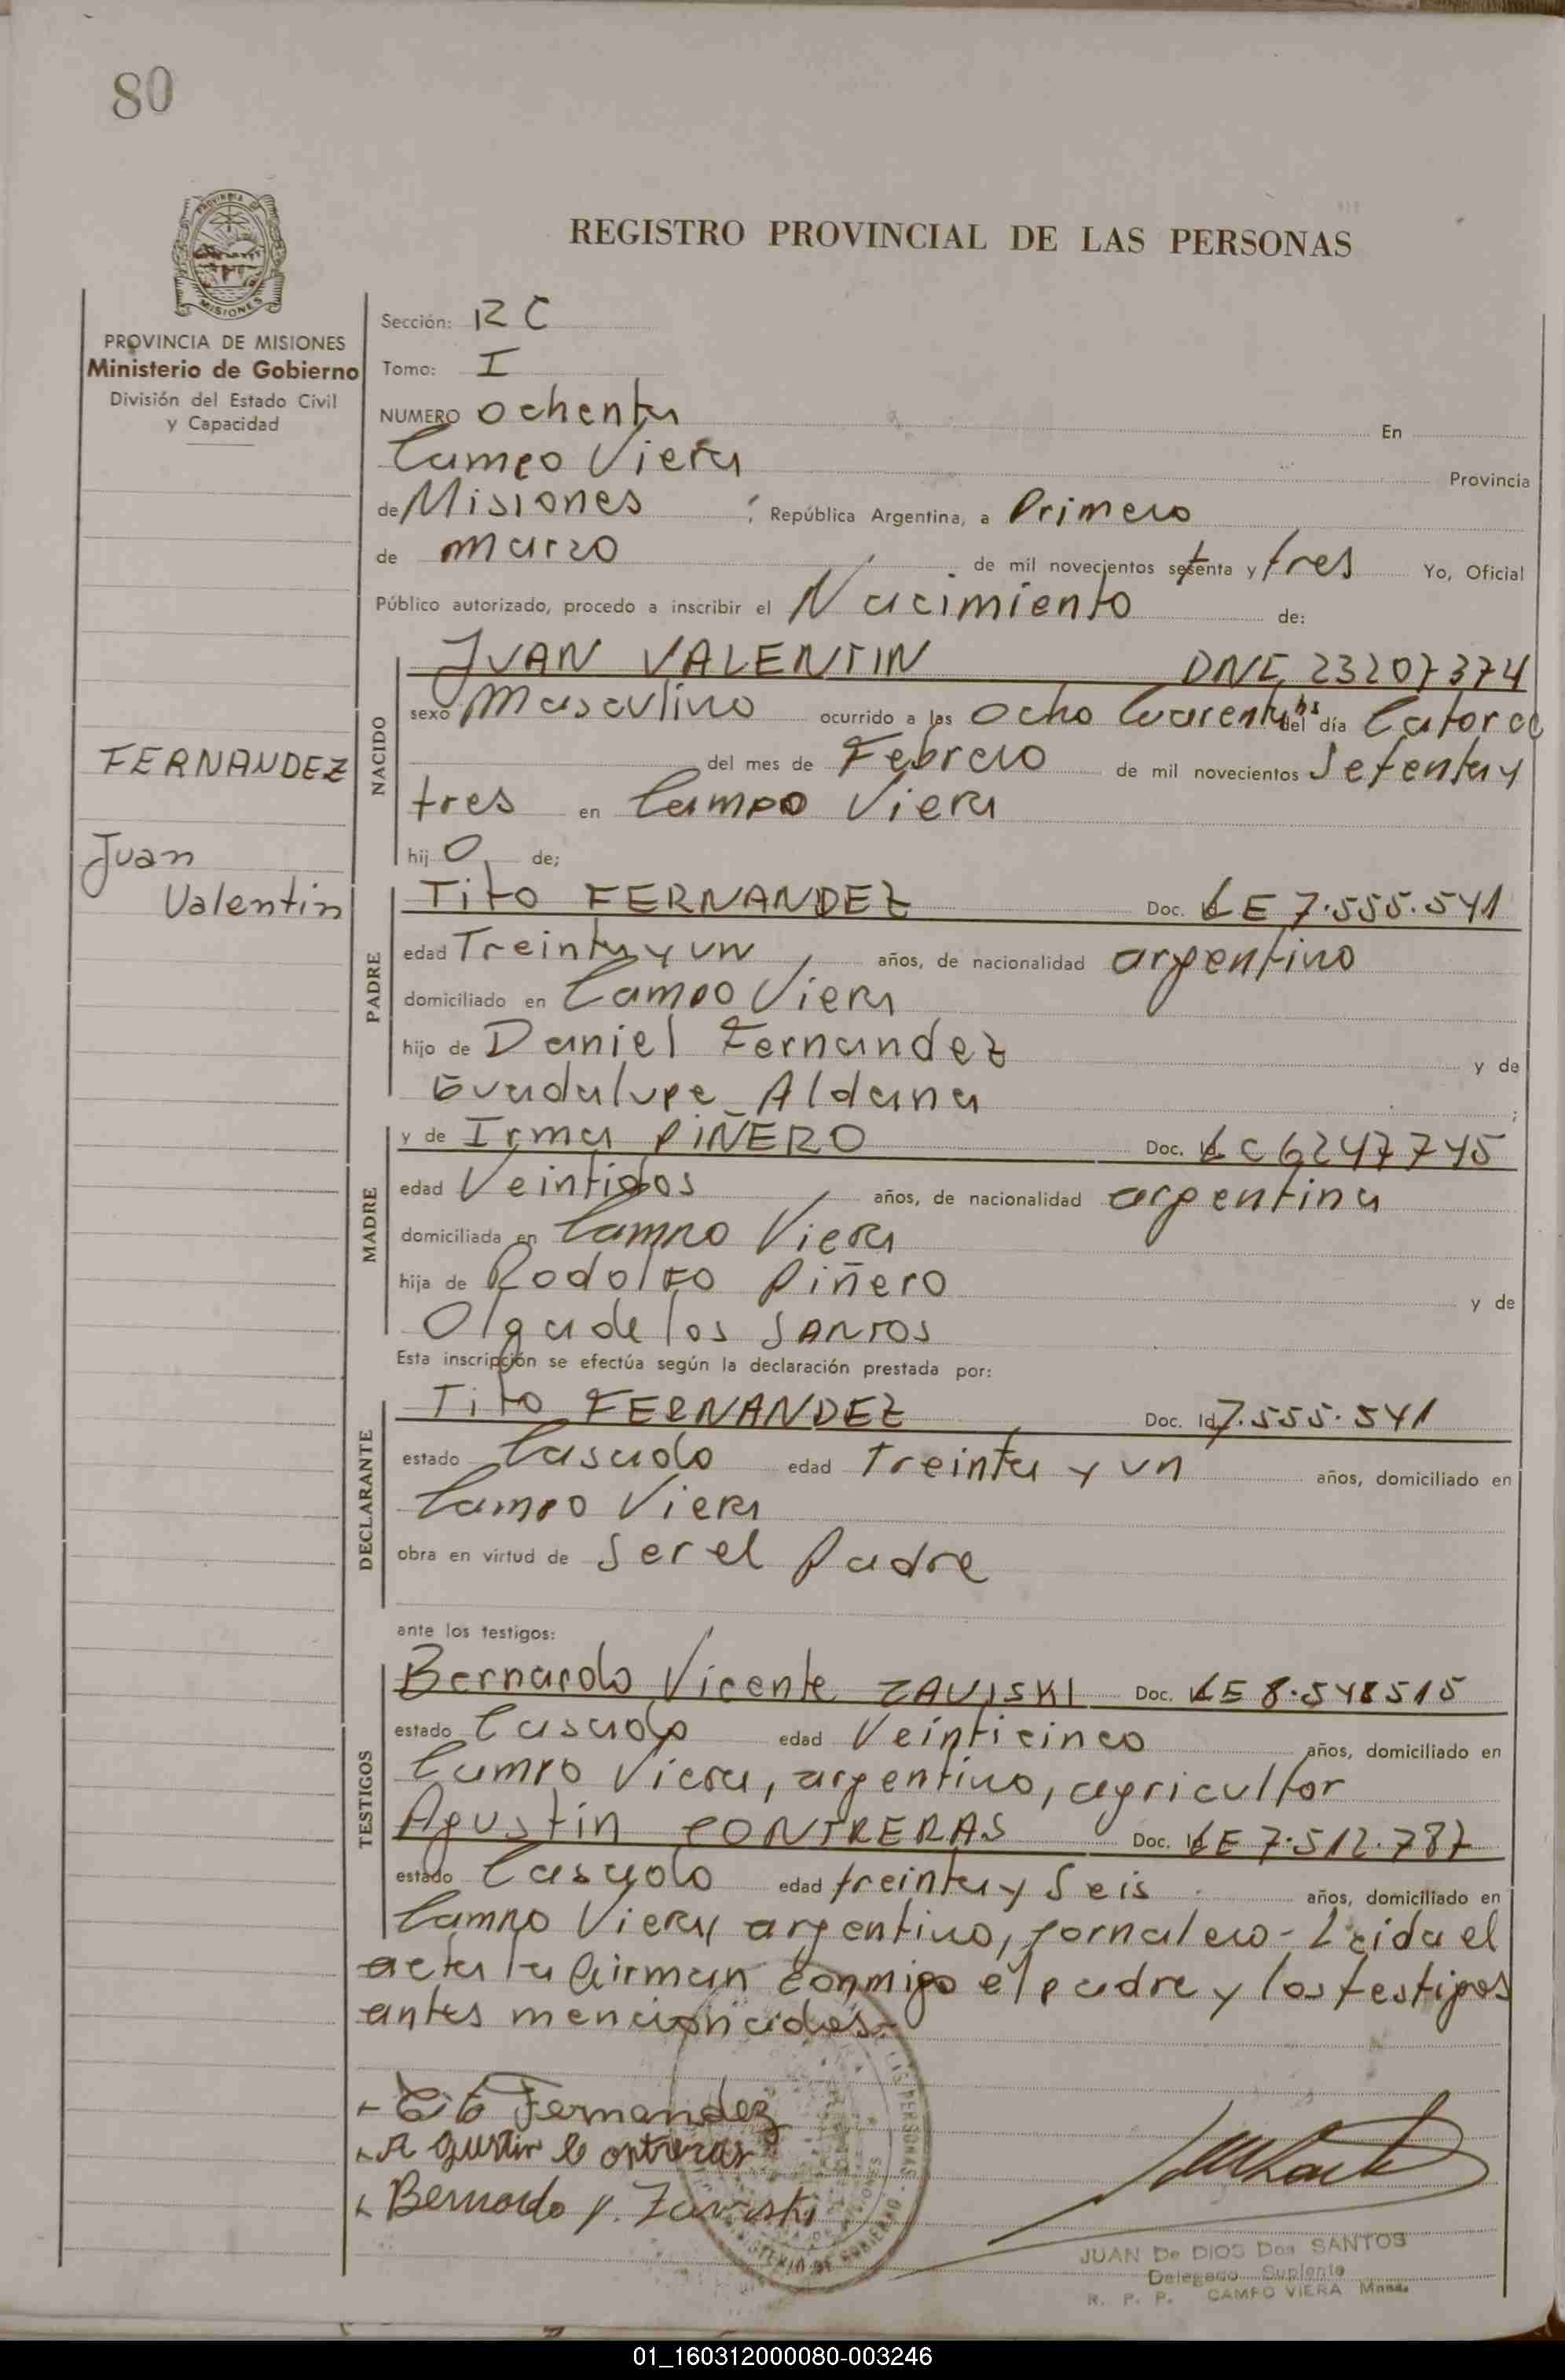 80
PROVINCIA DE MISIONES
REGISTRO PROVINCIAL DE LAS PERSONAS
PROVINCIA DE MISIONES
Ministerio de Gobierno
División del Estado Civil
y Capacidad
FERNANDEZ
Juan
Valentin
Sección: RC
Tomo: I
NUMERO Ochenta En
Campo Viera Provincia
de Misiones , República Argentina, a Primero
de marzo de mil novecientos setenta y tres Yo, Oficial
Público autorizado, procedo a inscribir el Nacimiento de:
NACIDO
JUAN VALENTIN DNI 23207374
sexo Masculino ocurrido a las Ocho Cuarenta hs del día Catorce
del mes de Febrero de mil novecientos Setenta y
tres en Campo Viera
hij o de;
PADRE
Tito FERNANDEZ Doc. LE 7.555.541
edad Treinta y un años, de nacionalidad argentino
domiciliado en Campo Viera
hijo de Daniel Fernandez y de
Guadalupe Aldana ;
MADRE
y de Irma PIÑERO Doc. LC 6247745
edad Veintidos años, de nacionalidad argentina
domiciliada en Campo Viera
hija de Rodolfo Piñero y de
Olga de los SANTOS
Esta inscripción se efectúa según la declaración prestada por:
DECLARANTE
Tito FERNANDEZ Doc. Id 7.555.541
estado Casado edad Treinta y un años, domiciliado en
Campo Viera
obra en virtud de Ser el Padre
ante los testigos:
TESTIGOS
Bernardo Vicente ZAVISKI Doc. LE 8.548515
estado Casado edad Veinticinco años, domiciliado en
Campo Viera, argentino, agricultor
Agustin CONTRERAS Doc. Id LE 7.512.787
estado Casado edad treinta y Seis años, domiciliado en
Campo Viera, argentino, jornalero - Leida el
acta la firman conmigo el padre y los testigos
antes mencionados-
Tito Fernandez
Agustin Contreras
Bernardo V. Zaviski
JUAN De DIOS Dos SANTOS
Delegado Suplente
R. P. P. CAMPO VIERA Mnes.
01_160312000080-003246